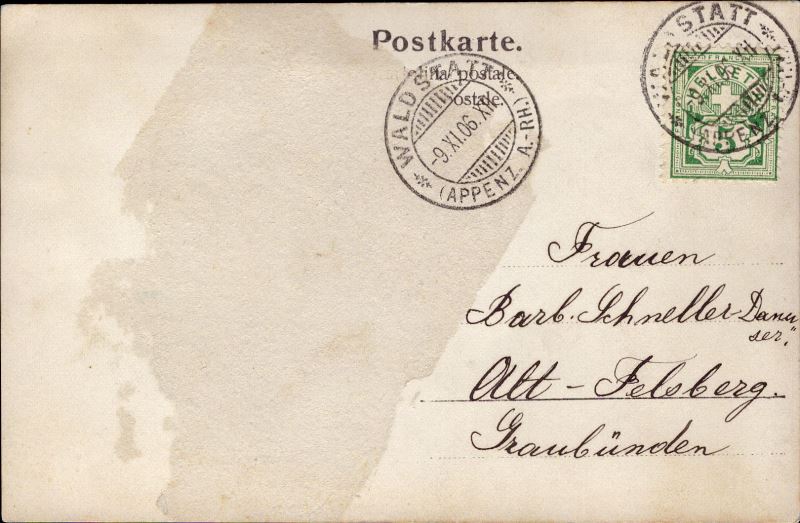 Postkarte.
postale.
postale.
WALDSTATT
-9.XI.06.XII
(APPENZ. A.-RH.)
WALDSTATT
(APPENZ.
FRANCO
HELVETIA
5
Frauen
Barb. Schneller Danu
ser."
Alt - Felsberg.
Graubünden